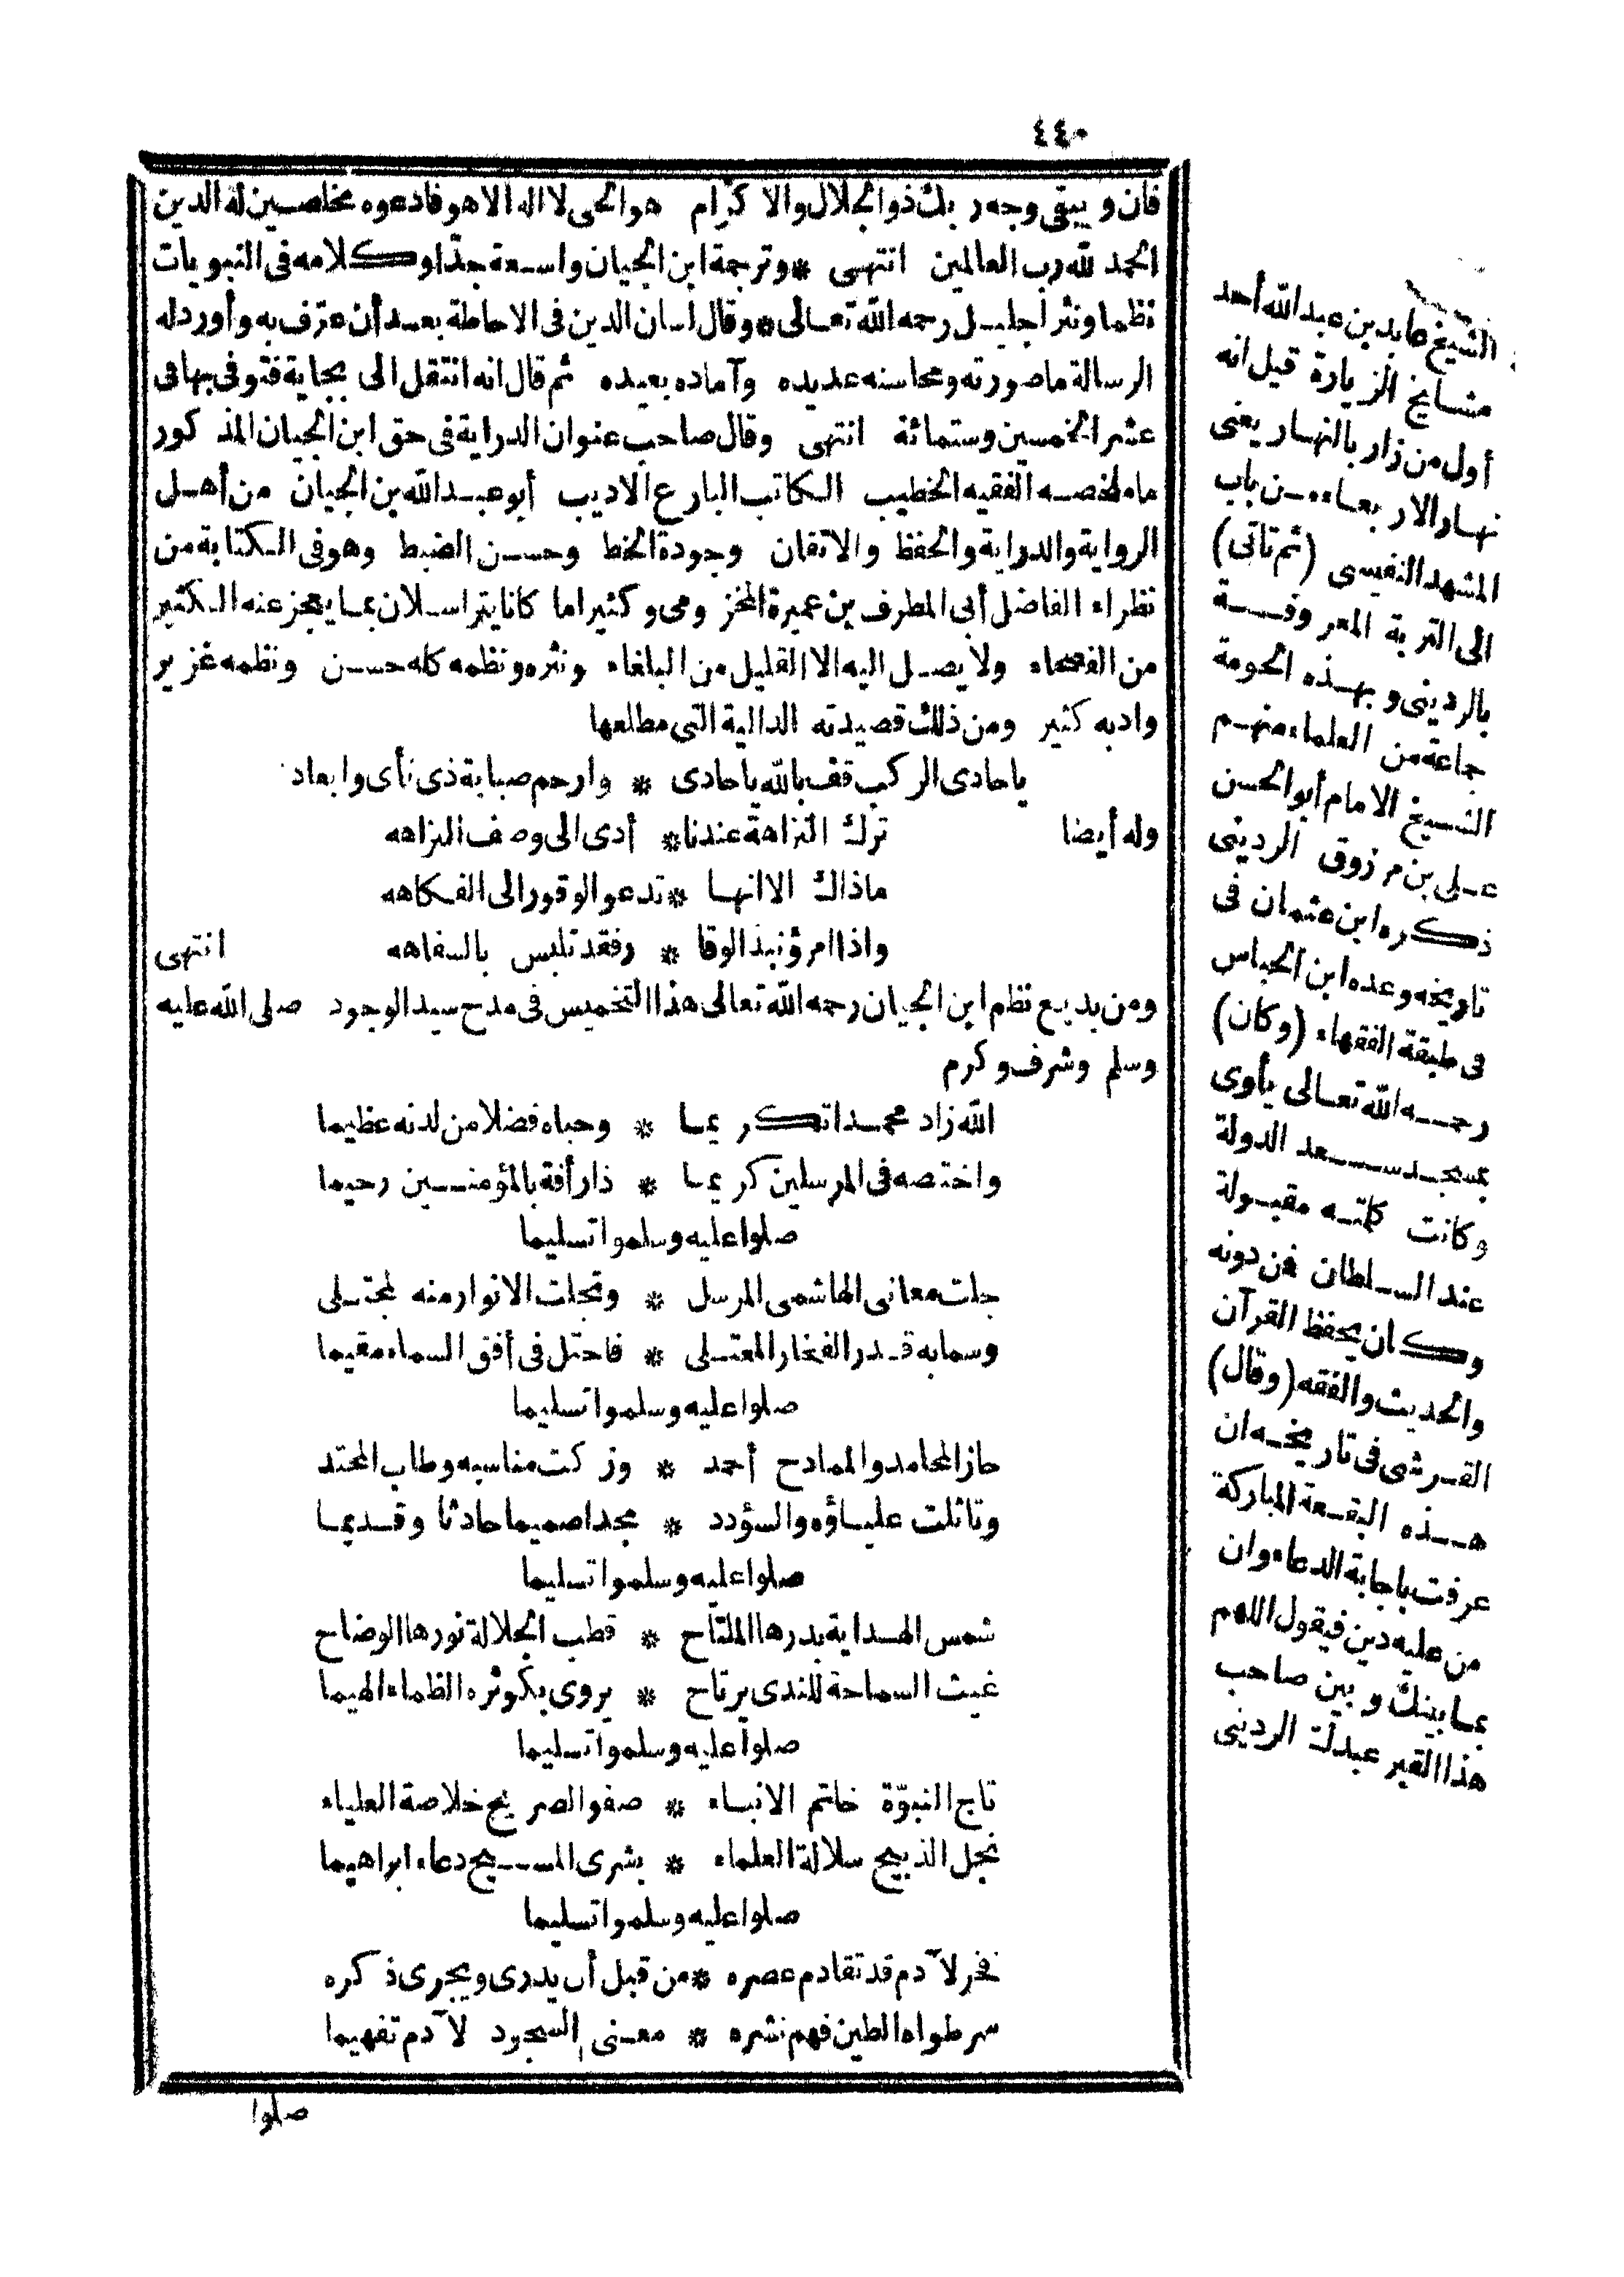 ٤٤٠
فان ويبقى وجه ربك ذو الجلال والا كرام هو الحى لا اله الا هو فادعوه مخلصين له الدين
الحمد لله رب العالمين انتهى * وترجمة ابن الجيان واسعة جدّا وكلامه فى النبويات
نظما ونثرا جليل رحمه الله تعالى * وقال لسان الدين فى الاحاطة بعد أن عرّف به وأورد له
الرسالة ما صورته ومحاسنه عديده وآماده بعيده ثم قال انه انتقل الى بجاية فتوفى بها فى
عشر الخمسين وستمائة انتهى وقال صاحب عنوان الدراية فى حق ابن الجيان المذكور
ما ملخصه الفقيه الخطيب الكاتب البارع الاديب أبو عبد الله بن الجيان من أهل
الرواية والدراية والحفظ والاتقان وجودة الخط وحسن الضبط وهو فى الكتابة من
نظراء الفاضل أبى المطرف بن عميرة المخزومى وكثيرا ما كانا يتراسلان بما يعجز عنه الكثير
من الفصحاء ولا يصل اليه الا القليل من البلغاء ونثره ونظمه كله حسن ونظمه غزير
وادبه كثير ومن ذلك قصيدته الدالية التى مطلعها
يا حادى الركب قف بالله يا حادى * وارحم صبابة ذى نأى وابعاد
وله أيضا ترك النزاهة عندنا * أدى الى وصف النزاهه
ماذاك الا انها * تدعو الوقور الى الفكاهه
واذا امرؤ نبذ الوقا * ر فقد تلبس بالسفاهه انتهى
ومن بديع نظم ابن الجيان رحمه الله تعالى هذا التخميس فى مدح سيد الوجود صلى الله عليه
وسلم وشرف وكرم
الله زاد محمدا تكريما * وحباه فضلا من لدنه عظيما
واختصه فى المرسلين كريما * ذا رأفة بالمؤمنين رحيما
صلوا عليه وسلموا تسليما
جلت معانى الهاشمى المرسل * وتجلت الانوار منه لمجتلى
وسما به قدر الفخار المعتلى * فاحتل فى أفق السماء مقيما
صلوا عليه وسلموا تسليما
حاز المحامد والممادح أحمد * وزكت مناسبه وطاب المحتد
وتاثلت علياؤه والسؤدد * مجدا صميما حادثا وقديما
صلوا عليه وسلموا تسليما
شمس الهداية بدرها الملتاح * قطب الجلالة نورها الوضاح
غيث السماحة للندى يرتاح * يروى بكوثره الظماء الهيما
صلوا عليه وسلموا تسليما
تاج النبوّة خاتم الانباء * صفو الصريح خلاصة العلياء
نجل الذبيح سلالة العلماء * بشرى المسيح دعاء ابراهيما
صلوا عليه وسلموا تسليما
نفر لآدم قد تقادم عصره * من قبل أن يدرى ويجرى ذكره
سر طواه الطين فهم نشره * معنى السجود لآدم تفهيما
صلوا
الشيخ عابد بن عبد الله أحد
مشايخ الزيارة قيل انه
أول من زار بالنهار يعنى
نهار الاربعاء من باب
المشهد النفيسى (ثم تأتى)
الى التربة المعروفة
بالردينى وبهذه الحومة
جماعة من العلماء منهم
الشيخ الامام أبو الحسن
على بن مرزوق الردينى
ذكره ابن عثمان فى
تاريخه وعده ابن الجباس
فى طبقة الفقهاء (وكان)
رحمه الله تعالى يأوى
بمسجد سعد الدولة
وكانت كلمته مقبولة
عند السلطان فمن دونه
وكان يحفظ القرآن
والحديث والفقه (وقال)
القرشى فى تاريخه ان
هذه البقعة المباركة
عرفت باجابة الدعاء وان
من عليه دين فيقول اللهم
بما بينك وبين صاحب
هذا القبر عبدك الردينى